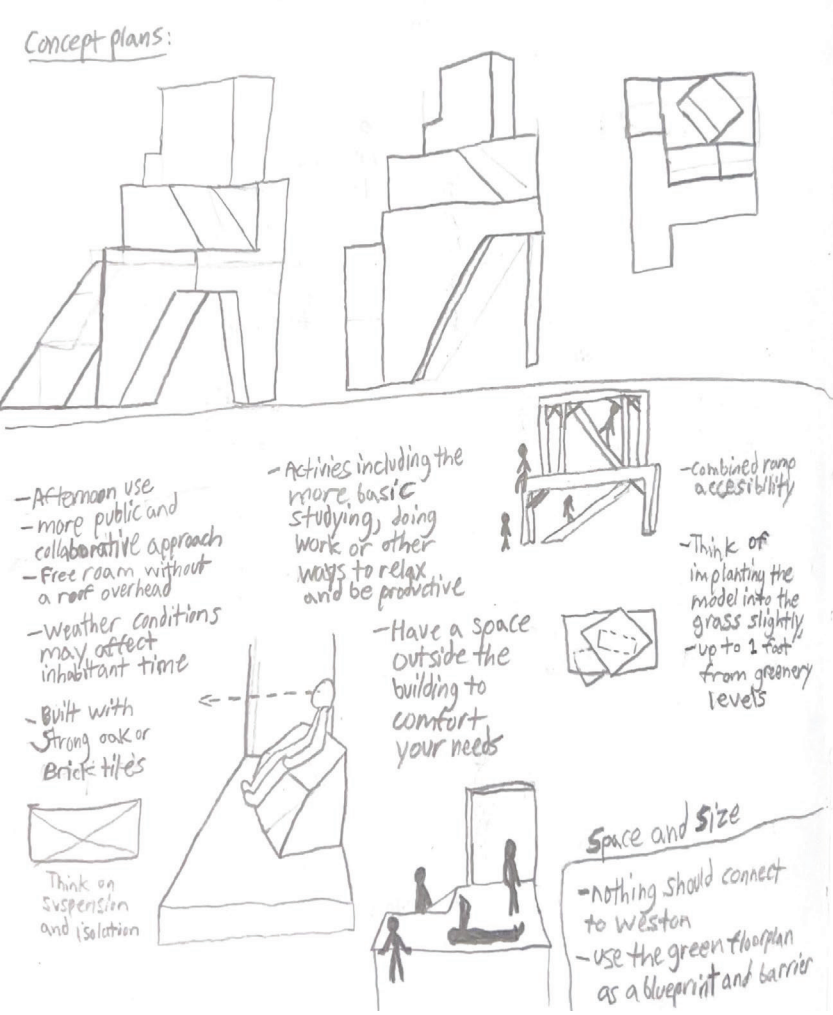 Concept plans:
- Afternoon use
- more public and
collaborative approach
- Free roam without
a roof overhead
- Weather conditions
may affect
inhabitant time
- Built with
strong oak or
Brick tiles
Think on
suspension
and isolation
- Activies including the
more basic
studying, doing
work or other
ways to relax
and be productive
- Have a space
outside the
building to
comfort
your needs
- Combined ramp
accesibility
- Think of
implanting the
model into the
grass slightly
- up to 1 foot
from greenery
levels
Space and Size
- nothing should connect
to Weston
- use the green floorplan
as a blueprint and barrier